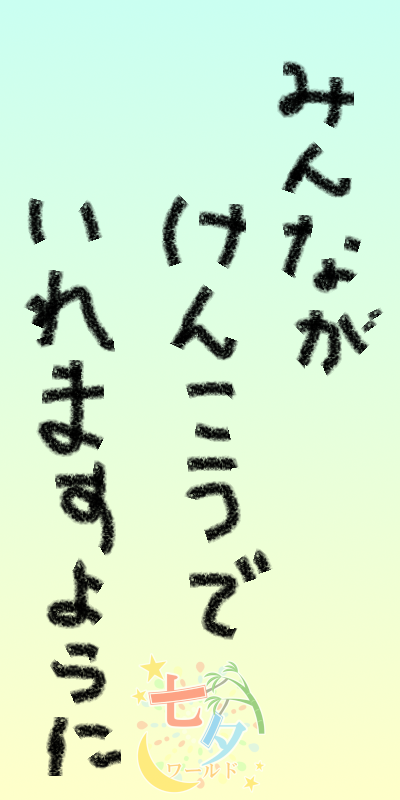 みんなが
けんこうで
いれますように
七夕
ワールド